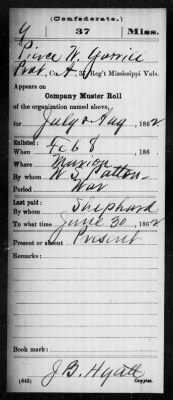 (Confederate.)
G 37 Miss.
Pierce W.
Pvt, Co. A, 37 Reg't Mississippi Vols.
Appears on
Company Muster Roll
of the organization named above,
for July & Aug, 1862
Enlisted:
When Feb 8 186
Where Marion
By whom W. S. Patton
Period War
Last paid:
By whom Shephard
To what time June 30, 1862
Present or absent Present
Remarks:
Book mark:
J. B. Hyatt
(642) Copyist.